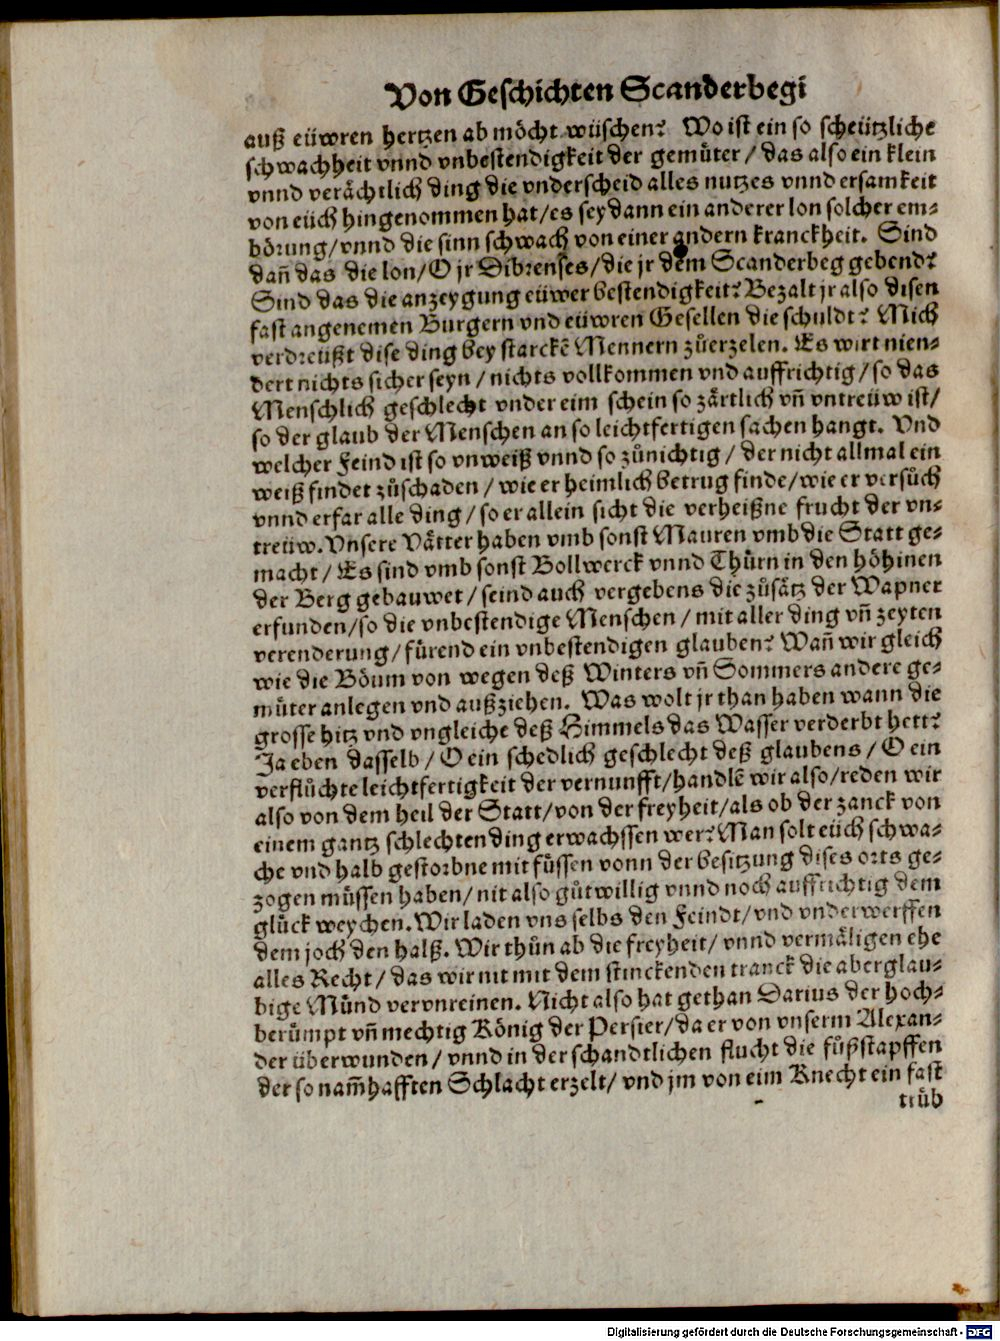 Von Geschichten Scanderbegi
auß eüwren hertzen ab möcht wüschen? Wo ist ein so scheützliche
schwachheit vnnd vnbestendigkeit der gemüter / das also ein klein
vnnd verächtlich ding die vnderscheid alles nutzes vnnd ersamkeit
von eüch hingenommen hat/es sey dann ein anderer lon solcher em⸗
börung/vnnd die sinn schwach von einer andern kranckheit. Sind
dañ das die lon/O jr Dibrenses/die jr dem Scanderbeg gebend?
Sind das die anzeygung eüwer bestendigkeit? Bezalt jr also disen
fast angenemen Burgern vnd eüwren Gesellen die schuldt? Mich
verdreüßt dise ding bey starckẽ Mennern zůerzelen. Es wirt nien⸗
dert nichts sicher seyn / nichts vollkommen vnd auffrichtig / so das
Menschlich geschlecht vnder eim schein so zärtlich vñ vntreüw ist/
so der glaub der Menschen an so leichtfertigen sachen hangt. Vnd
welcher Feind ist so vnweiß vnnd so zůnichtig / der nicht allmal ein
weiß findet zůschaden / wie er heimlich betrug finde/wie er versůch
vnnd erfar alle ding / so er allein sicht die verheißne frucht der vn⸗
treüw. Vnsere Vätter haben vmb sonst Mauren vmb die Statt ge⸗
macht / Es sind vmb sonst Bollwerck vnnd Thürn in den höhinen
der Berg gebauwet / seind auch vergebens die zůsätz der Wapner
erfunden/so die vnbestendige Menschen / mit aller ding vñ zeyten
verenderung/fürend ein vnbestendigen glauben? Wañ wir gleich
wie die Böum von wegen deß Winters vñ Sommers andere ge⸗
müter anlegen vnd außziehen. Was wolt jr than haben wann die
grosse hitz vnd vngleiche deß Himmels das Wasser verderbt hett?
Ja eben dasselb / O ein schedlich geschlecht deß glaubens / O ein
verflůchte leichtfertigkeit der vernunfft/handlẽ wir also/reden wir
also von dem heil der Statt/von der freyheit/als ob der zanck von
einem gantz schlechten ding erwachssen wer? Man solt eüch schwa⸗
che vnd halb gestorbne mit füssen vonn der besitzung dises orts ge⸗
zogen müssen haben/nit also gůtwillig vnnd noch auffrichtig dem
glück weychen. Wir laden vns selbs den Feindt/vnd vnderwerffen
dem joch den halß. Wir thůn ab die freyheit/ vnnd vermäligen ehe
alles Recht / das wir nit mit dem stinckenden tranck die aberglau⸗
bige Münd vervnreinen. Nicht also hat gethan Darius der hoch⸗
berümpt vñ mechtig König der Persier/da er von vnserm Alexan⸗
der überwunden / vnnd in der schandtlichen flucht die fůßstapffen
der so nam̃hafften Schlacht erzelt/ vnd jm von eim Knecht ein fast
trüb
Digitalisierung gefördert durch die Deutsche Forschungsgemeinschaft - DFG